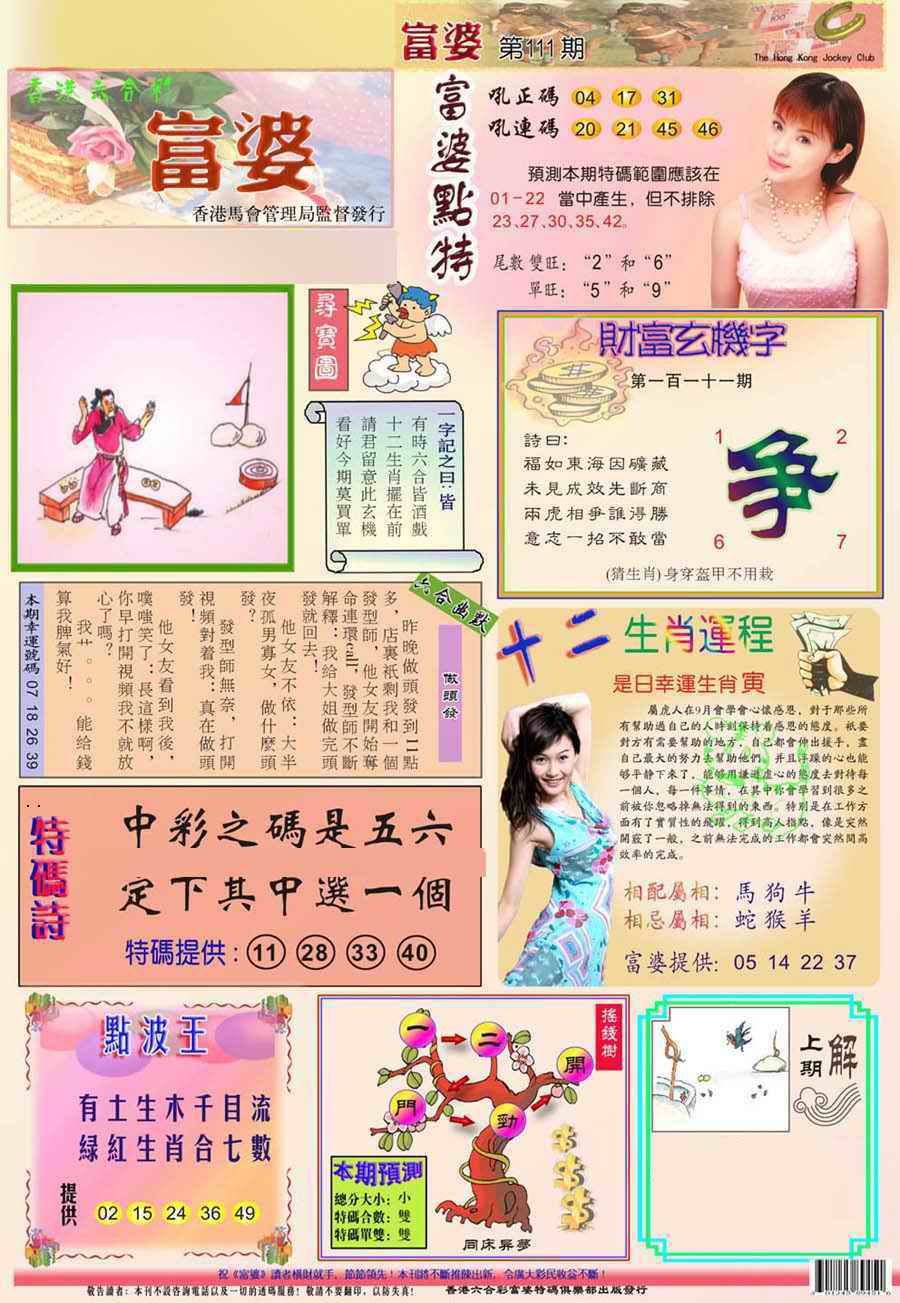 富婆 第111期
The Hong Kong Jockey Club
香港六合彩
富婆
香港馬會管理局監督發行
富婆點特
吼正碼 04 17 31
吼連碼 20 21 45 46
預測本期特碼範圍應該在
01-22 當中產生，但不排除
23、27、30、35、42。
尾數雙旺：“2”和“6”
單旺：“5”和“9”
尋寶圖
一字記之曰：皆
有時六合皆酒戲
十二生肖擺在前
請君留意此玄機
看好今期莫買單
財富玄機字
第一百一十一期
詩曰：
福如東海因礦藏
未見成效先斷商
兩虎相爭誰得勝
意志一招不敢當
1 2
争
6 7
(猜生肖)身穿盔甲不用栽
六合幽默
做頭發
昨晚做頭發到11點
多，店裏衹剩我和一個
發型師，他女友開始奪
命連環call，發型師不斷
解釋：我給大姐做完頭
發就回去！
他女友不依：大半
夜孤男寡女，做什麼頭
發？
發型師無奈，打開
視頻對着我：真在做頭
發！
他女友看到我後，
噗嗤笑了：長這樣啊，
你早打開視頻我不就放
心了嗎？
我艹。。。能給錢
算我脾氣好！
本期幸運號碼 07 18 26 39
十二生肖運程
是日幸運生肖 寅
屬虎人在9月會學會心懷感恩，對于那些所
有幫助過自己的人時刻保持着感恩的態度。衹要
對方有需要幫助的地方，自己都會伸出援手，盡
自己最大的努力去幫助他們，并且浮躁的心也能
够平静下來了，能够用謙遜虛心的態度去對待每
一個人，每一件事情，在其中你會學習到很多之
前被你忽略掉無法得到的東西。特別是在工作方
面有了實質性的飛躍，得到高人指點，像是突然
開竅了一般，之前無法完成的工作都會突然間高
效率的完成。
相配屬相：馬狗牛
相忌屬相：蛇猴羊
富婆提供：05 14 22 37
特碼詩
中彩之碼是五六
定下其中選一個
特碼提供：11 28 33 40
點波王
有土生木千目流
綠紅生肖合七數
提供 02 15 24 36 49
搖錢樹
一 二 開
門 勁
本期預測
總分大小：小
特碼合數：雙
特碼單雙：雙
同床异夢
上期解
祝《富婆》讀者橫財就手，節節領先！本刊將不斷推陳出新，令廣大彩民收益不斷！
敬告讀者：本刊不設咨詢電話以及一切的透碼服務！敬請不要翻印，以防失真！ 香港六合彩富婆特碼俱樂部出版發行